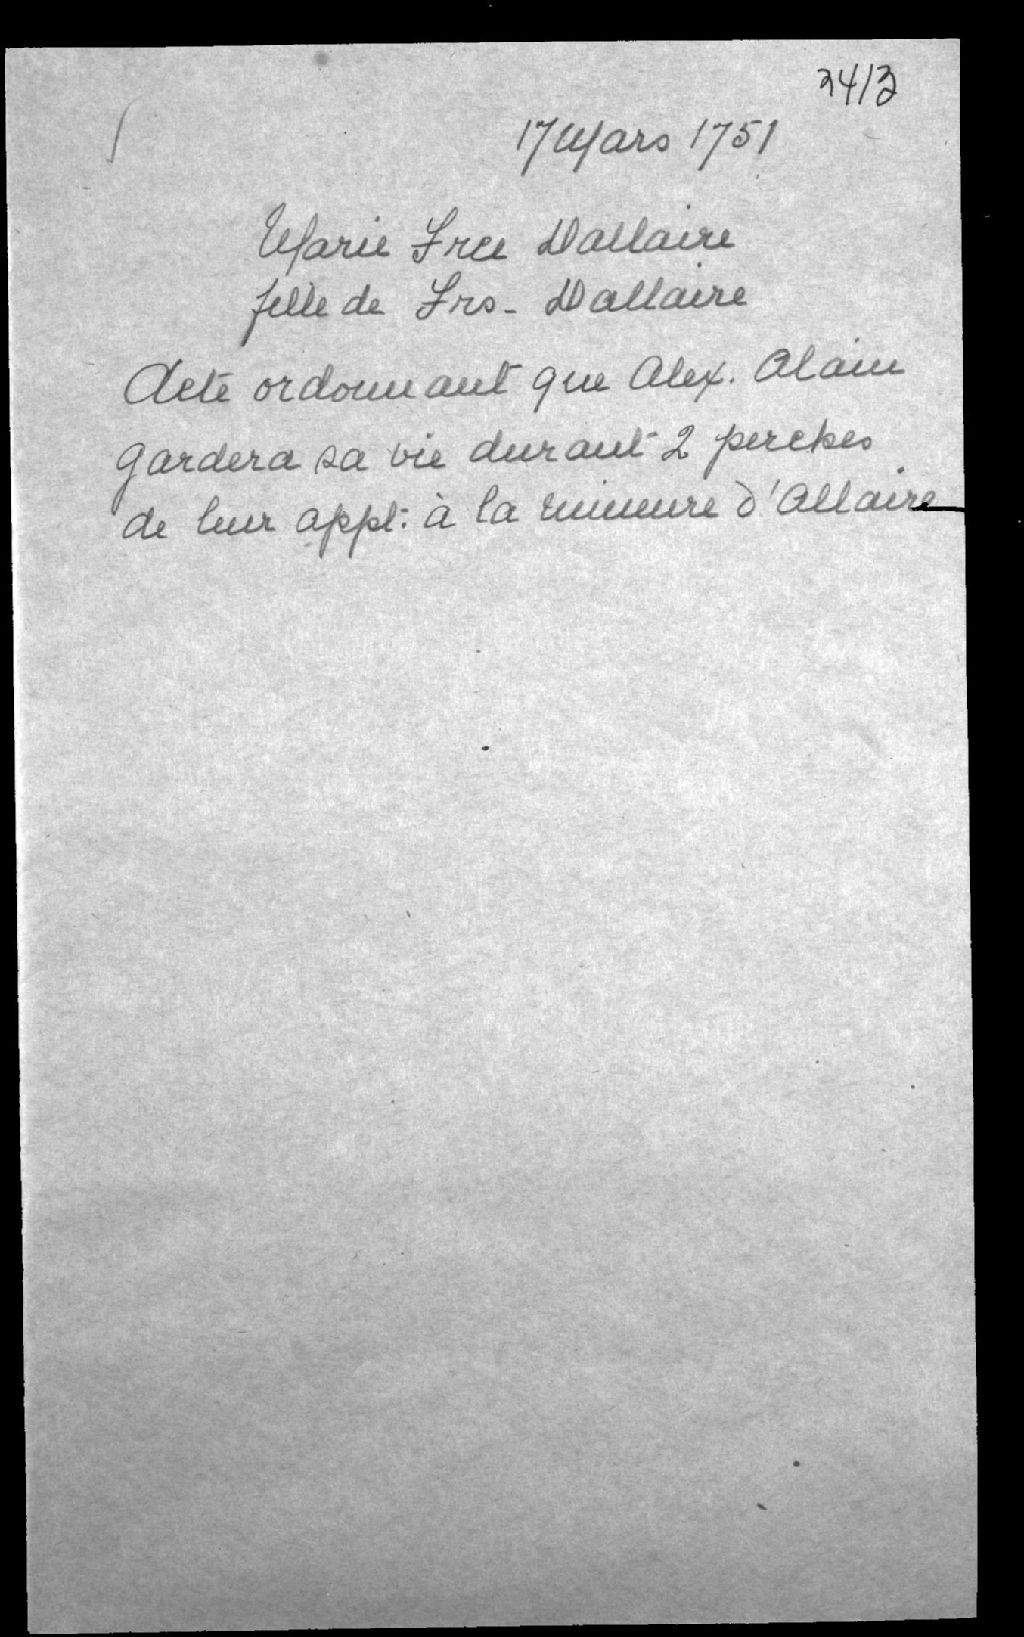 3413
17 Mars 1751
Marie Frce Dallaire
fille de Frs - Dallaire
Acte ordonnant que Alex. Alain
gardera sa vie durant 2 perches
de leur appt: à la mineure d'Allaire